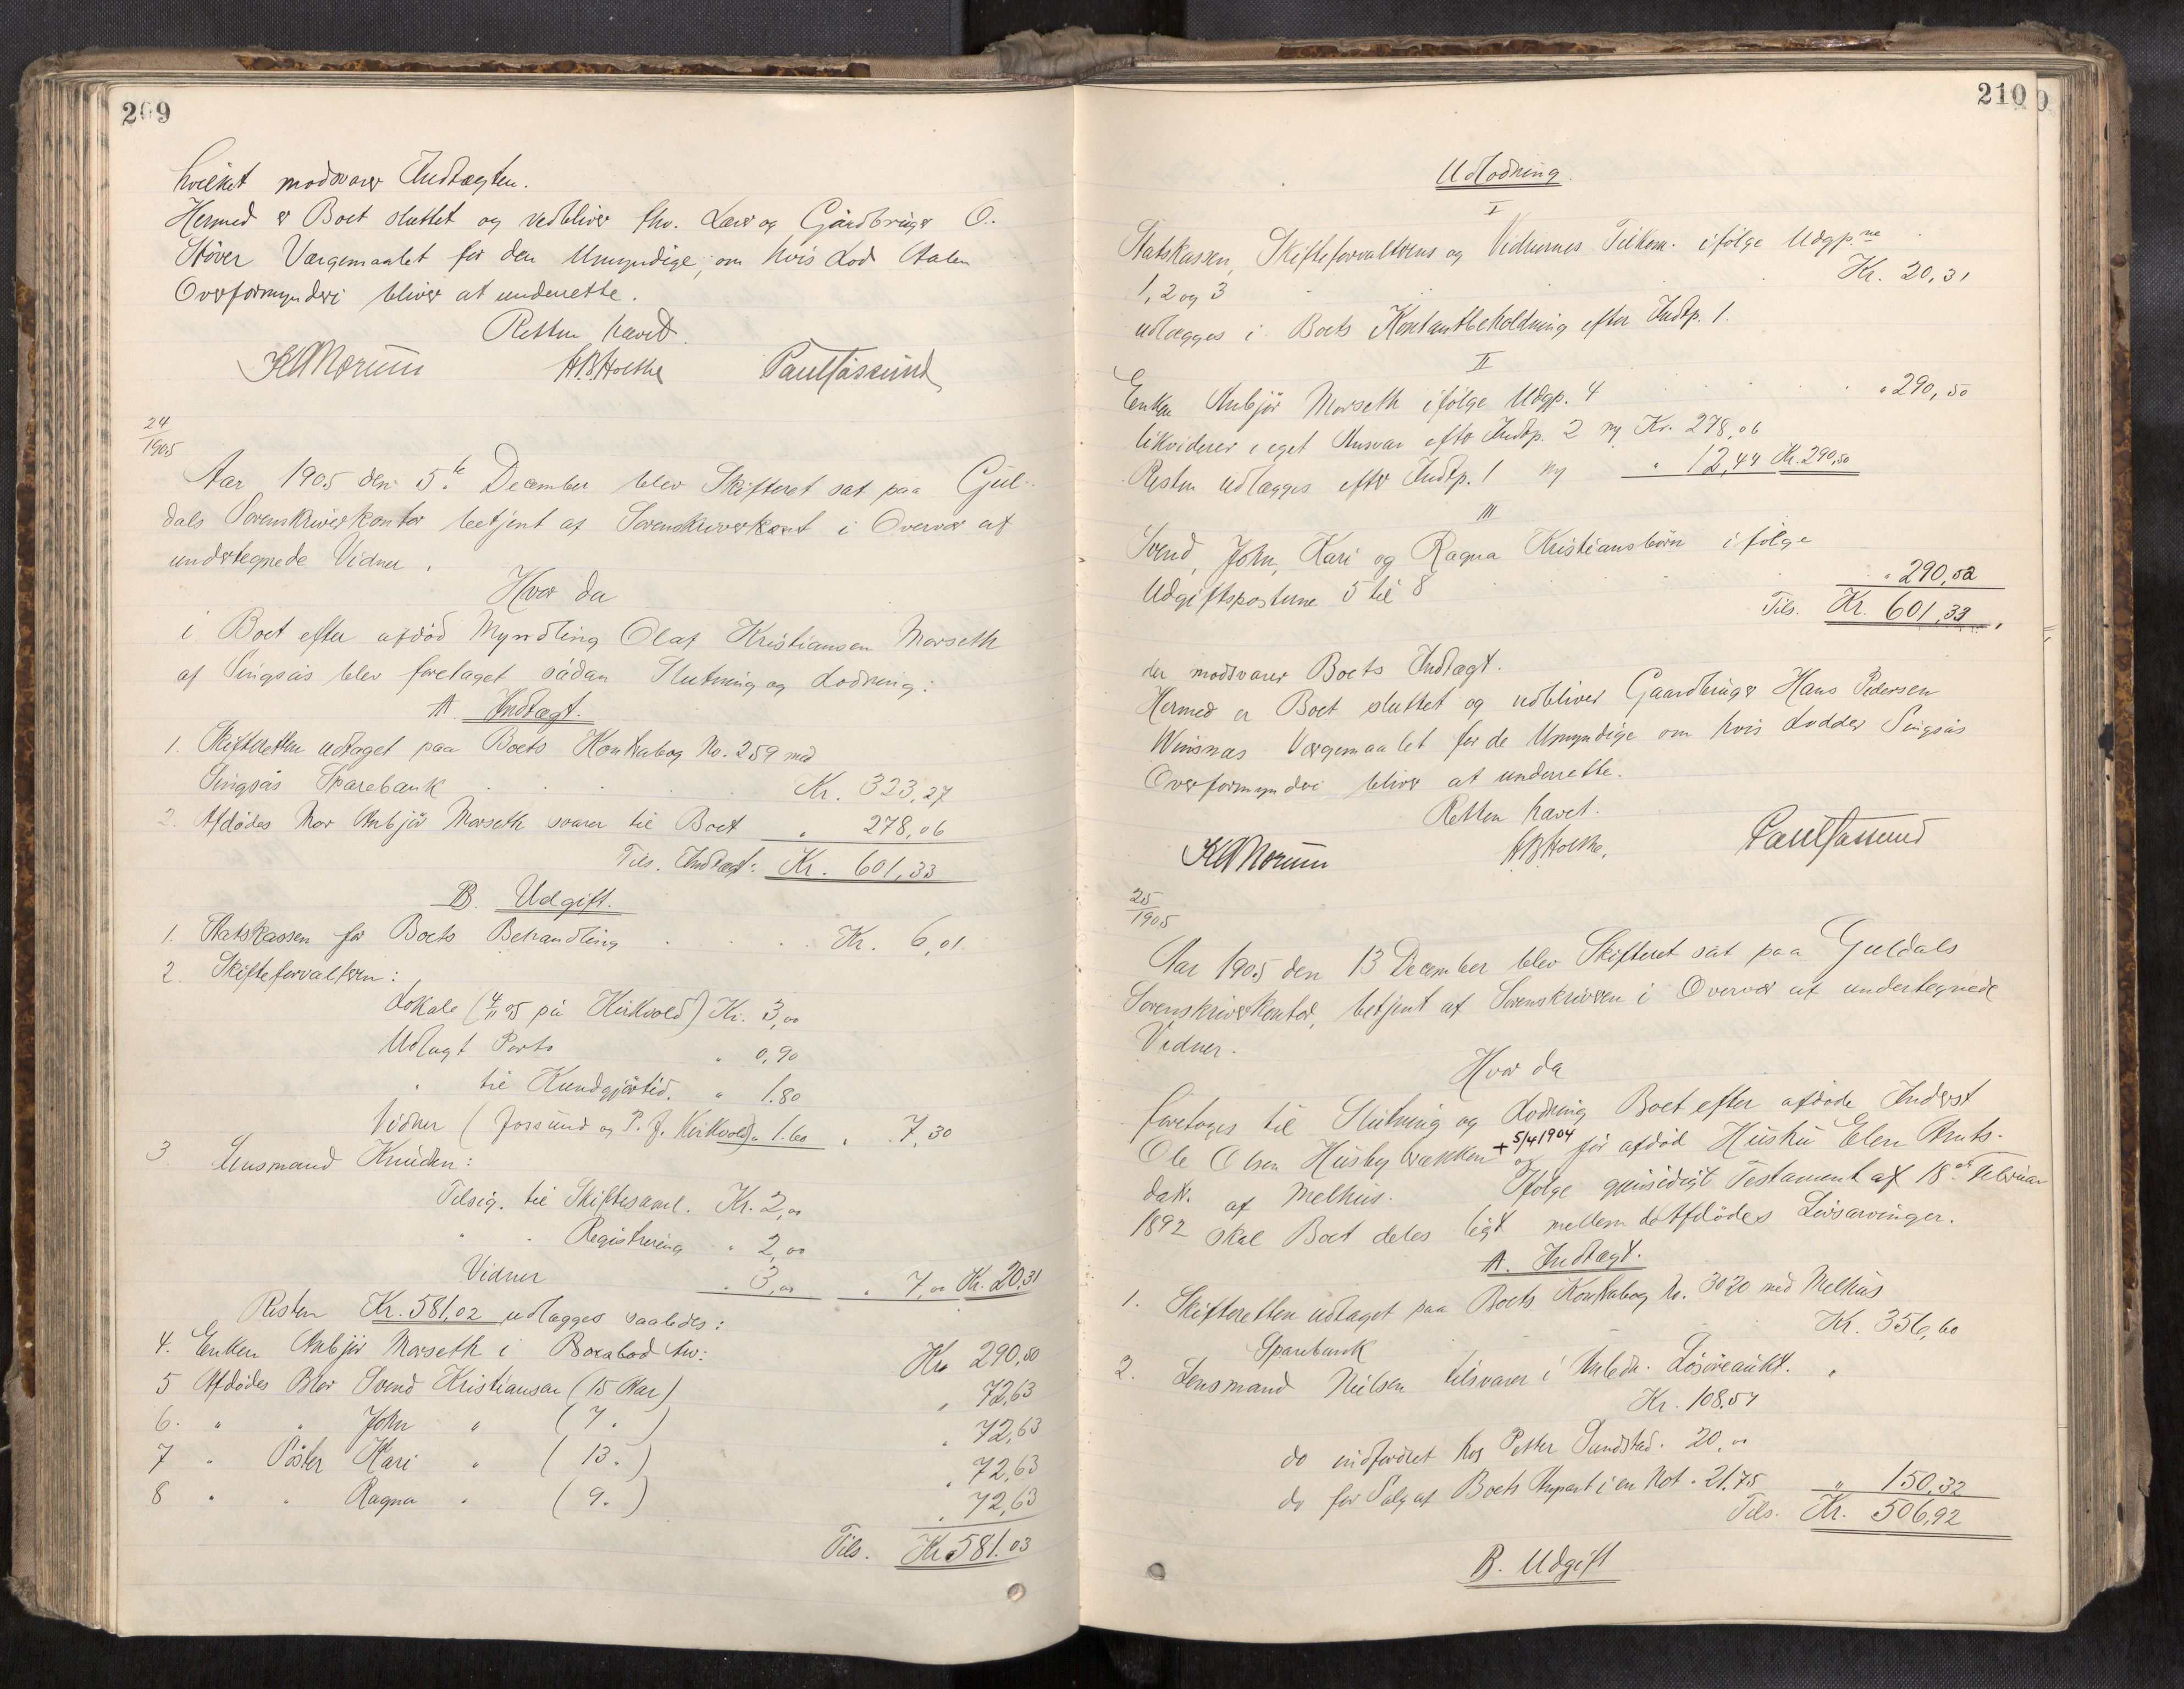 209
hvilket modsvarer Indtægten.
Hermed er Boet sluttet og vedbliver fhv. Lærer og Gårdbruger O.
Støver Værgemaalet for den Umyndige, om hvis Lod Aalen
Overformynderi bliver at underrette.
Retten hævet.
24
1905
Aar 1905 den 5te December blev Skifteret sat paa Gul-
dals Sorenskriverkontor betjent af Sorenskriverkont i Overvær af
undertegnede Vidner.
Hvor da
i Boet efter afdød Myndling Olaf Kristiansen Morseth
af Singsås blev foretaget sådan Slutning og Lodning:
A. Indtægt.
1. Skifteretten udtaget paa Boets Kontrabog No. 259 med
Singsås Sparebank . . . . Kr. 323,27
2. Afdødes Mor Anbjør Morseth svarer til Boet " 278,06
Tils. Indtægt: Kr. 601,33
B. Udgift.
1. Statskassen for Boets Behandling . . . . Kr. 6,01
2. Skifteforvalteren:
Lokale (4/11 05 på Kirkvold) Kr. 3,00
Udlagt Porto " 0,90
" til Kundgjørtid. " 1.80
Vidner (Jossund og P. J. Kirkvold) " 1.60 " 7,30
3 Lensmand Knudsen:
Tilsig. til Skiftesaml. Kr. 2,00
" " Registrering " 2,00
Vidner " 3,00 " 7,00 Kr. 20.31
Resten Kr. 581,02 udlægges saaledes:
4. Enken Anbjør Morseth i Boeslod Kr 290,50
5 Afdødes Bror Svend Kristiansen (15 Aar) " 72,63
6. " " John " (7 " ) " 72,63
7 " Søster Kari " (13 " ) " 72,63
8 " " Ragna " (9 " ) " 72,63
Tils. Kr 581.03
210
Udlodning.
I
Statskassen, Skifteforvalterens og Vidnernes Tilkom. ifølge Udgp.ne
1, 2 og 3 Kr. 20,31
udlægges i Boets Kontantbeholdning efter Indtp. 1.
II
Enken Anbjør Morseth ifølge Udgp. 4 . . . " 290,50
likviderer i eget Ansvar efter Indtp. 2 Kr. 278,06
Resten udlægges efter Indtp. 1 " 12,44 Kr. 290,50
III
Svend, John, Kari og Ragna Kristiansbørn ifølge
Udgiftsposterne 5 til 8 " 290,52
Tils. Kr. 601,33,
der modsvarer Boets Indtægt.
Hermed er Boet sluttet og vedbliver Gaardbruger Hans Pedersen
Winsnas Værgemaalet for de Umyndige om hvis Lodder Singsås
Overformynderi bliver at underrette.
Retten hævet.
25
1905
Aar 1905 den 13 December blev Skifteret sat paa Guldals
Sorenskriverkontor, betjent af Sorenskriveren i Overvær af undertegnede
Vidner.
Hvor da
foretoges til Slutning og Lodning Boet efter afdøde Inderst
Ole Olsen Husby + 5/4 1904 og før afdød Hustru Elen Arnts-
datr. af Melhus. Ifølge gjensidigt Testament af 18de Februar
1892 skal Boet deles ligt mellem de Afdødes Livsarvinger.
A. Indtægt.
1. Skifteretten udtaget paa Boets Kontrabog No. 3020 med Melhus
Sparebank Kr. 356,60
2. Lensmand Nielsen tilsvarer i Anledn. Løsøreaukt. "
Kr. 108.57
do indfordret hos Petter Sundstad " 20,00
do for Salg af Boets Anpart i en Not " 21.75 " 150,32
Tils. Kr. 506,92
B. Udgift